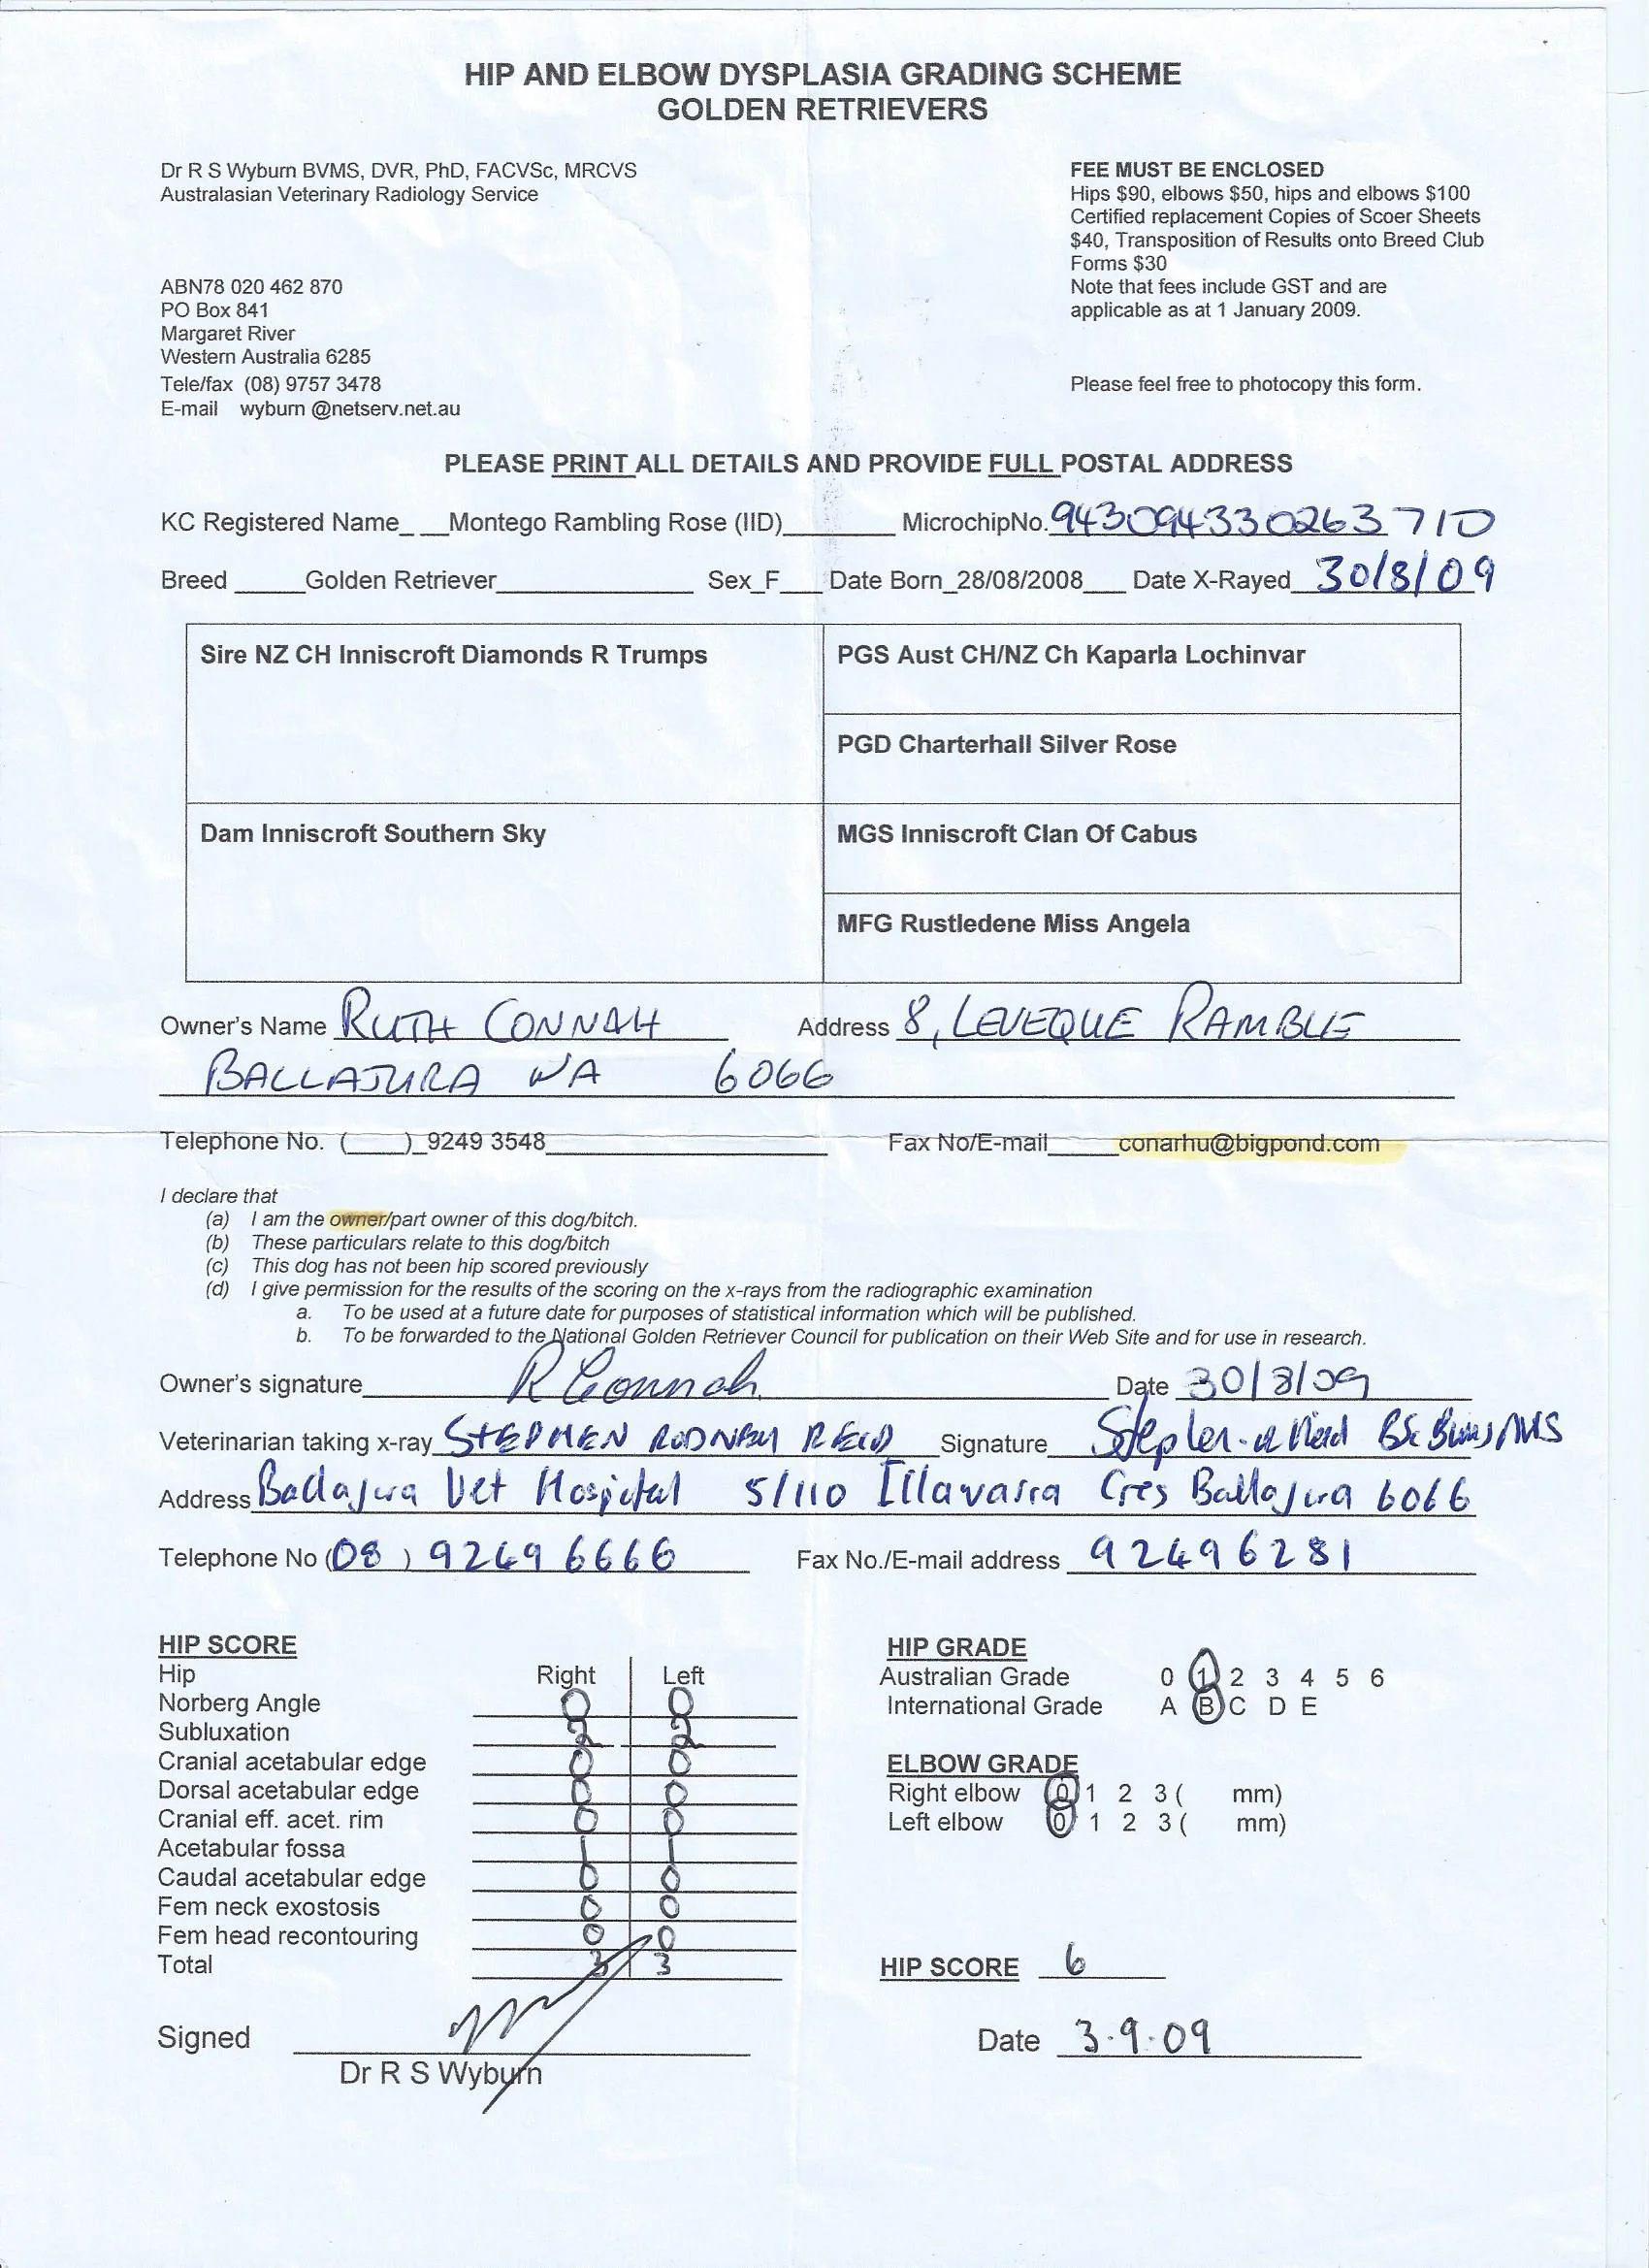 HIP AND ELBOW DYSPLASIA GRADING SCHEME
GOLDEN RETRIEVERS
Dr R S Wyburn BVMS, DVR, PhD, FACVSc, MRCVS
Australasian Veterinary Radiology Service
ABN78 020 462 870
PO Box 841
Margaret River
Western Australia 6285
Tele/fax (08) 9757 3478
E-mail wyburn @netserv.net.au
FEE MUST BE ENCLOSED
Hips $90, elbows $50, hips and elbows $100
Certified replacement Copies of Scoer Sheets
$40, Transposition of Results onto Breed Club
Forms $30
Note that fees include GST and are
applicable as at 1 January 2009.
Please feel free to photocopy this form.
PLEASE PRINT ALL DETAILS AND PROVIDE FULL POSTAL ADDRESS
KC Registered Name_ __Montego Rambling Rose (IID)________ MicrochipNo. 943094330263710
Breed _____Golden Retriever______________ Sex_F___ Date Born_28/08/2008___ Date X-Rayed 30/8/09
Sire NZ CH Inniscroft Diamonds R Trumps
PGS Aust CH/NZ Ch Kaparla Lochinvar
PGD Charterhall Silver Rose
Dam Inniscroft Southern Sky
MGS Inniscroft Clan Of Cabus
MFG Rustledene Miss Angela
Owner's Name RUTH CONNAH Address 8, LEVEQUE RAMBLE
BALLAJURA WA 6066
Telephone No. (____)_9249 3548____________________ Fax No/E-mail_____conarhu@bigpond.com
I declare that
(a) I am the owner/part owner of this dog/bitch.
(b) These particulars relate to this dog/bitch
(c) This dog has not been hip scored previously
(d) I give permission for the results of the scoring on the x-rays from the radiographic examination
a. To be used at a future date for purposes of statistical information which will be published.
b. To be forwarded to the National Golden Retriever Council for publication on their Web Site and for use in research.
Owner's signature R Connah Date 30/8/09
Veterinarian taking x-ray STEPHEN RODNEY REID Signature
Address Ballajura Vet Hospital 5/110 Illawarra Cres Ballajura 6066
Telephone No (08) 92496666 Fax No./E-mail address 92496281
HIP SCORE
Hip Right Left
Norberg Angle 0 0
Subluxation 2 2
Cranial acetabular edge 0 0
Dorsal acetabular edge 0 0
Cranial eff. acet. rim 0 0
Acetabular fossa 1 1
Caudal acetabular edge 0 0
Fem neck exostosis 0 0
Fem head recontouring 0 0
Total 3 3
Signed
Dr R S Wyburn
HIP GRADE
Australian Grade 0 1 2 3 4 5 6
International Grade A B C D E
ELBOW GRADE
Right elbow 0 1 2 3 ( mm)
Left elbow 0 1 2 3 ( mm)
HIP SCORE 6
Date 3.9.09